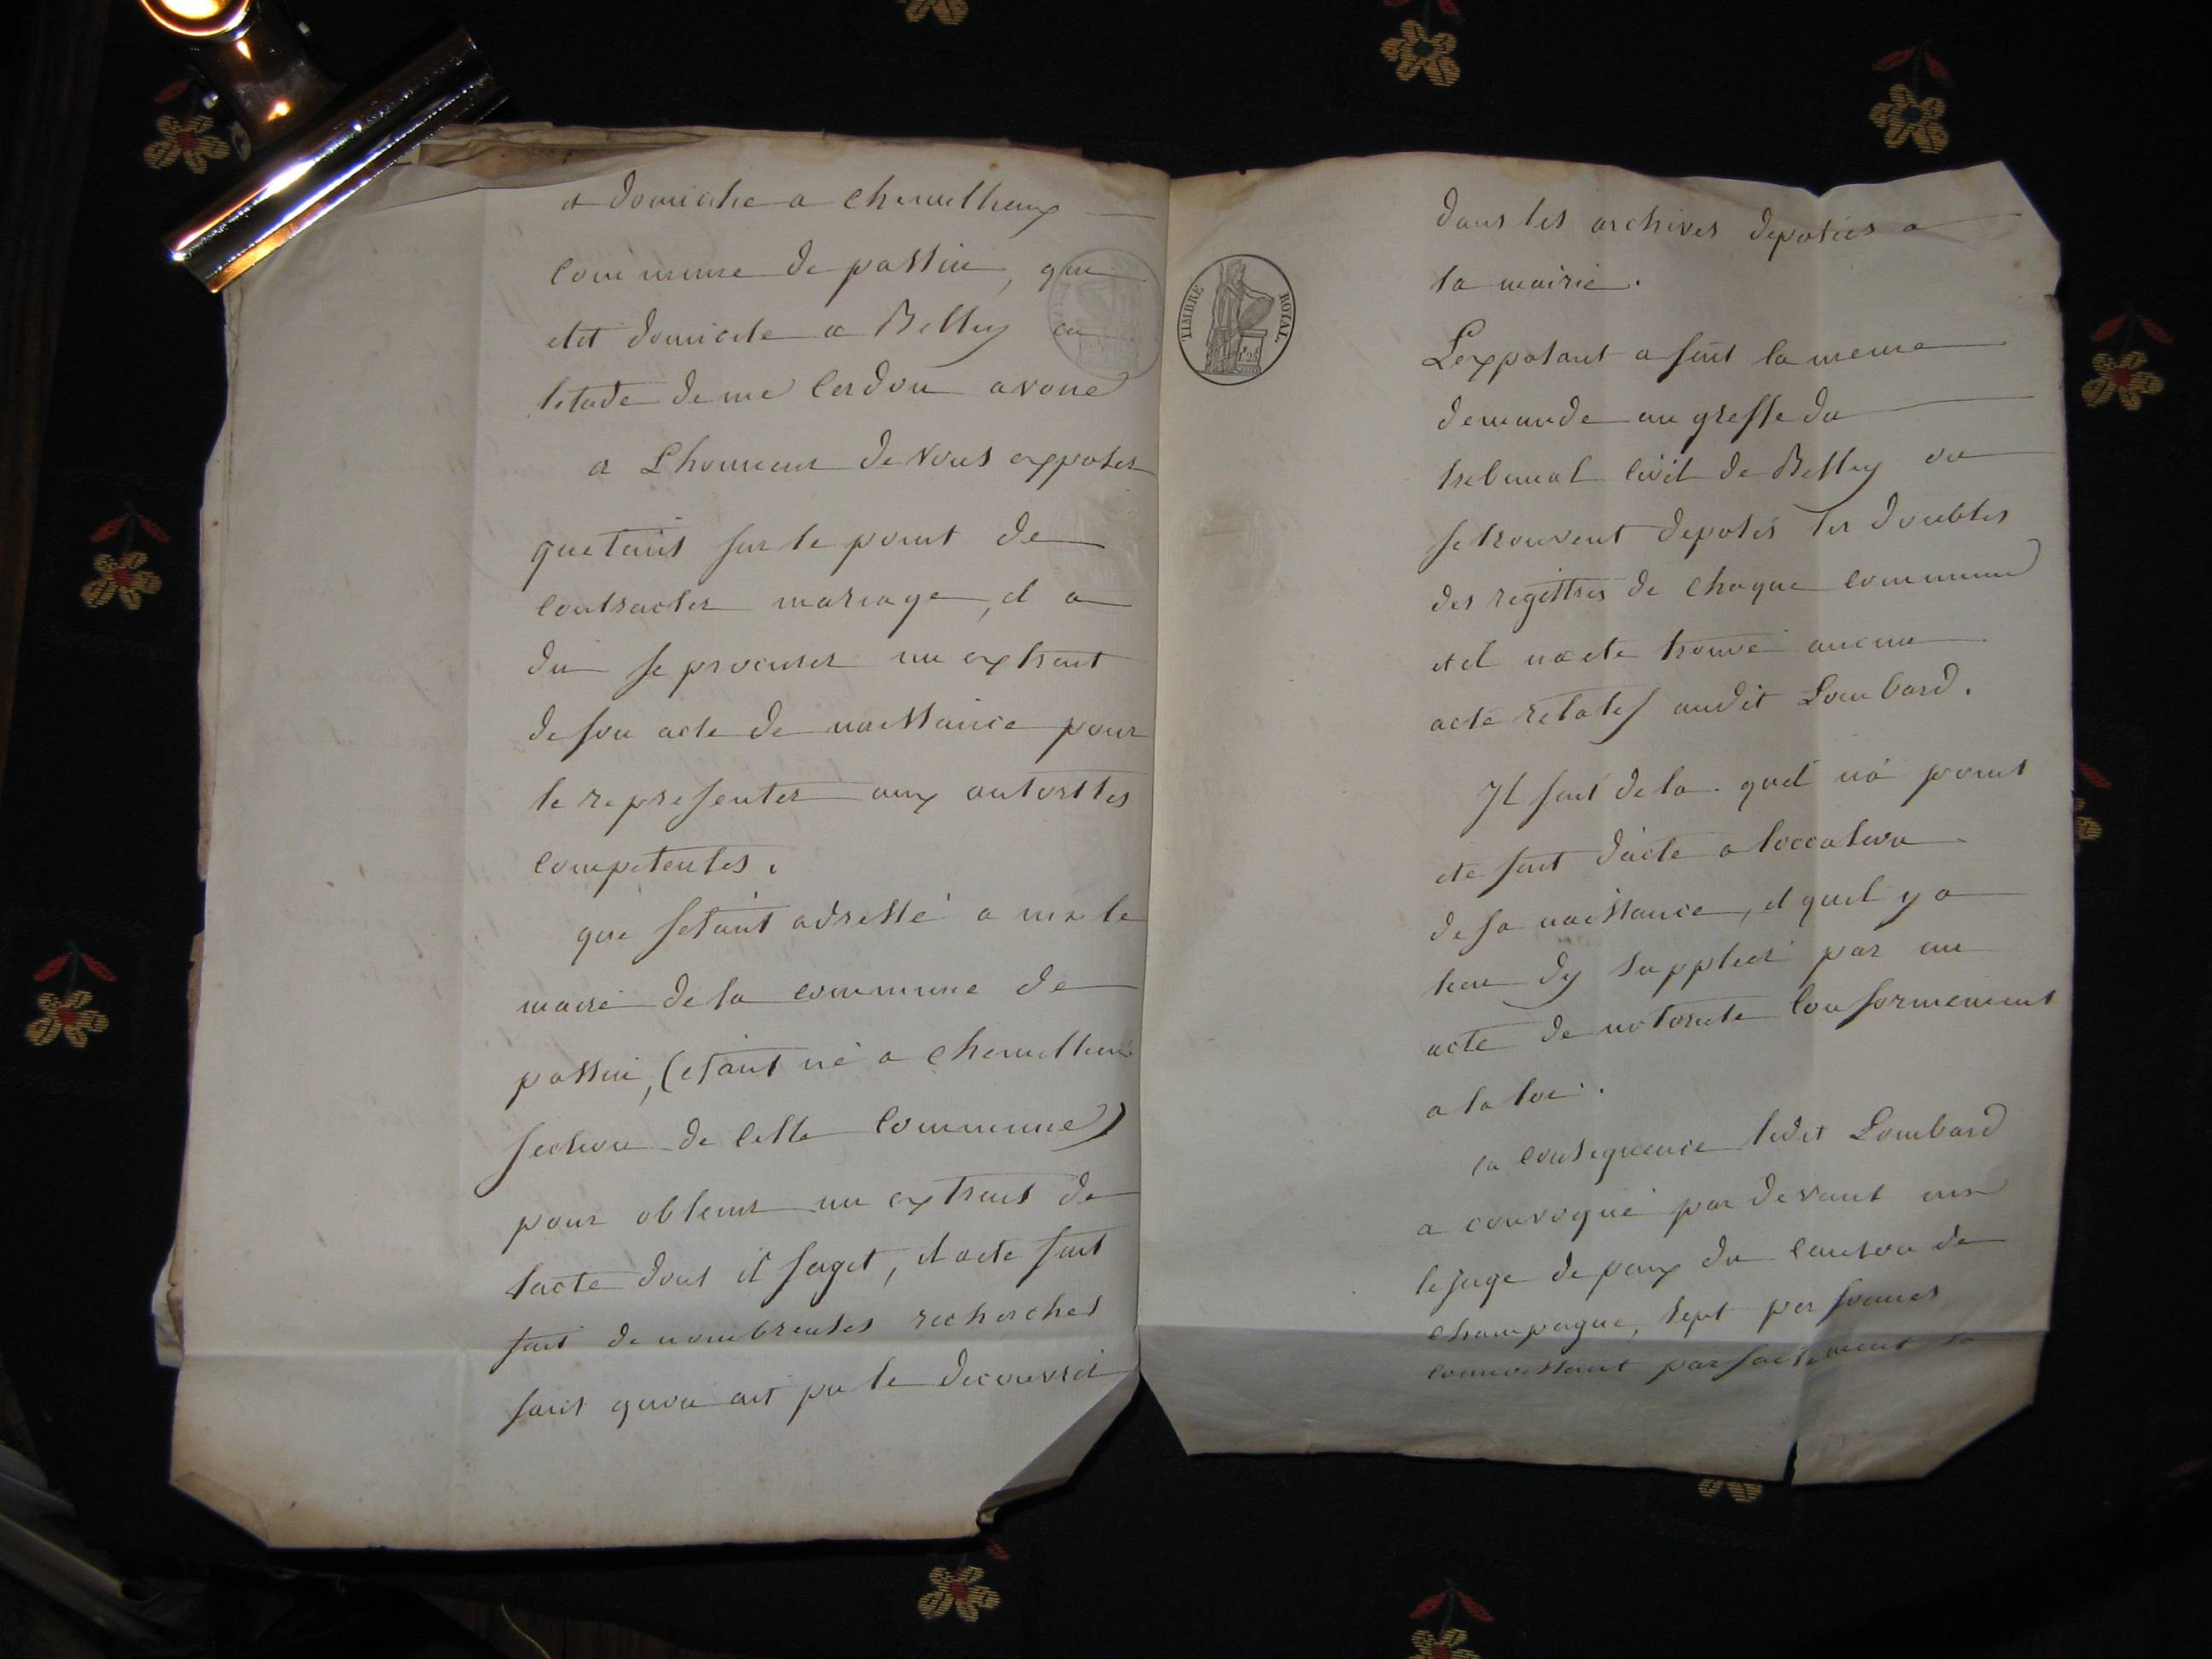 et domicilié a chemilleux
commune de passin, qui
elit domicile a Belley en
letude de me Cerdon avoué
a Lhonneur de vous exposer
quetant sur le point de
contracter mariage, il a
du se procurer un extrait
de son acte de naissance pour
le representer aux autorités
competentes.
que setant adressé a mr le
maire de la commune de
passin, (etant né a chemilleux
section de cette commune)
pour obtenir un extrait de
lacte dont il sagit, il a ete fait
fait de nombreuses recherches
sans quon ait pu le decouvrir
TIMBRE ROYAL
dans les archives deposées a
la mairie.
Lexposant a fait la meme
demande au greffe du
tribunal civil de Belley ou
se trouvent deposés les doubles
des registres de chaque commune
et il na ete trouvé aucun
acte relatif audit Lombard.
Il suit de la quil na point
ete fait dacte a loccasion
de sa naissance, et quil y a
lieu dy suppleer par un
acte de notorieté conformement
a la loi.
en consequence ledit Lombard
a convoqué par devant mr
le juge de paix du canton de
champagne, sept personnes
connaissant parfaitement sa